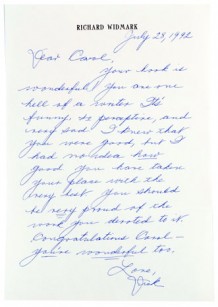 RICHARD WIDMARK
July 28, 1992
Dear Carol,
Your book is
wonderful! You are one
hell of a writer. It's
funny, so perceptive, and
very sad. I knew that
you were good, but I
had no idea how
good. You have taken
your place with the
very best. You should
be very proud of the
work you devoted to it.
Congratulations Carol —
you're wonderful too.
Love,
Dick